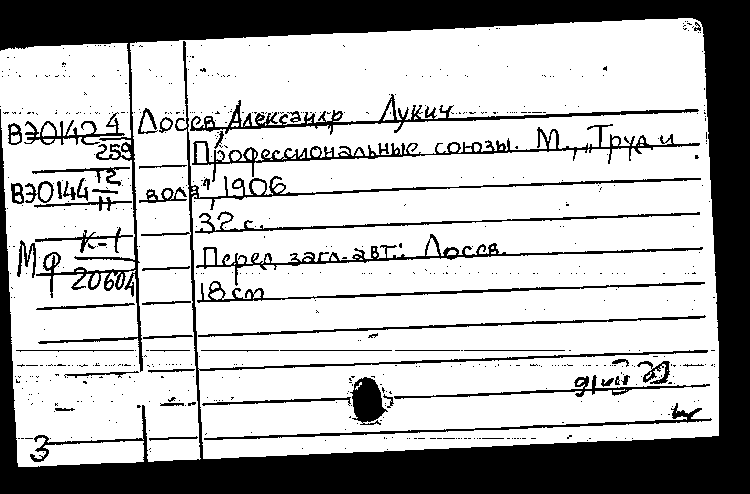 ВЭ0142 4/259 Лосев, Александр Лукич
Профессиональные союзы. М., „Труд и
ВЭ0144 12/11 воля", 1906
32 с.
Мф К-1/20604 Перед загл. авт.: Лосев.
18 cm
3